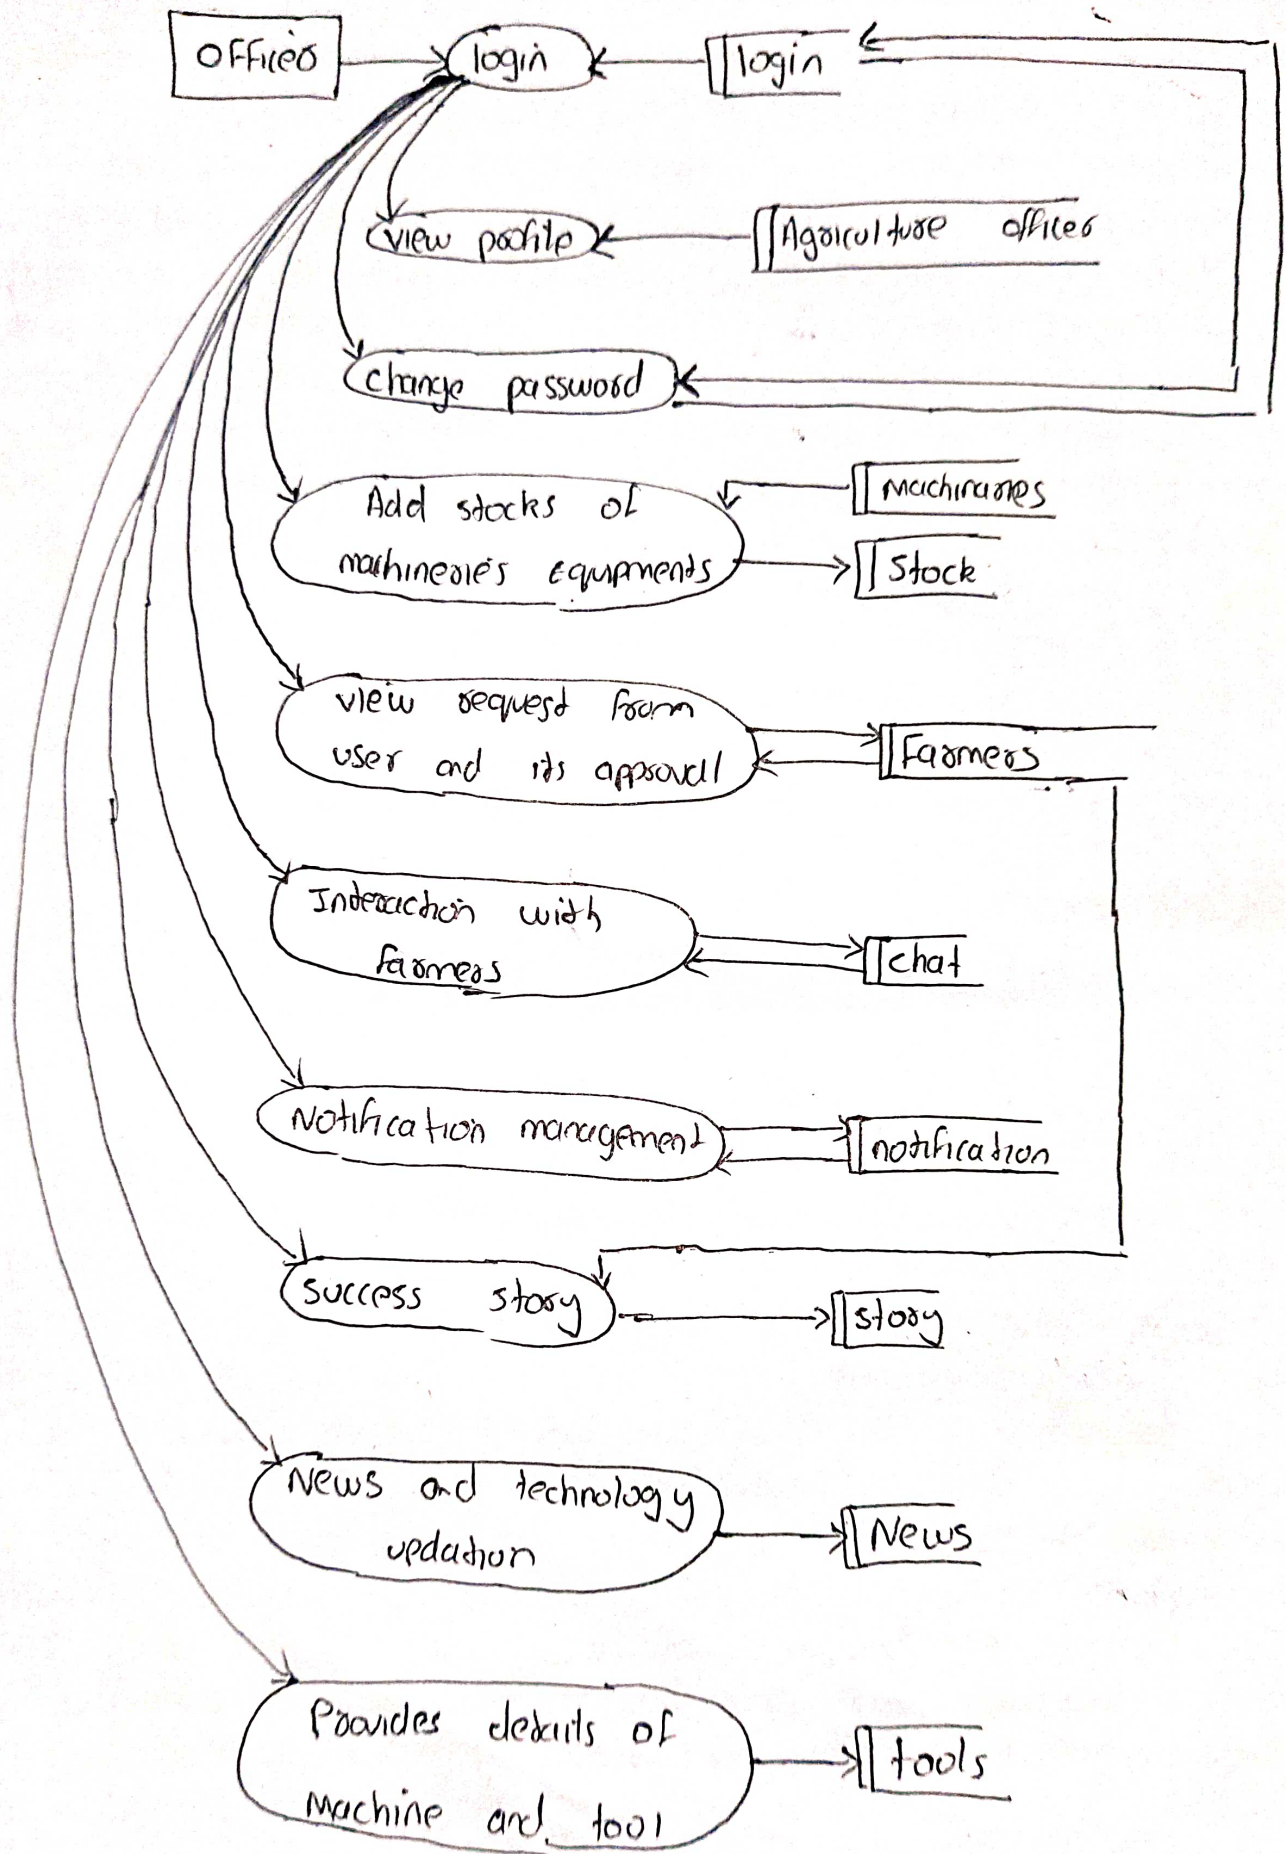 officer
login
login
view profile
Agriculture officer
change password
Add stocks of
machineries equipments
machinaries
stock
view request from
user and its approval
Farmers
Interaction with
farmers
chat
Notification management
notification
success story
story
News and technology
updation
News
Provides details of
Machine and tool
tools